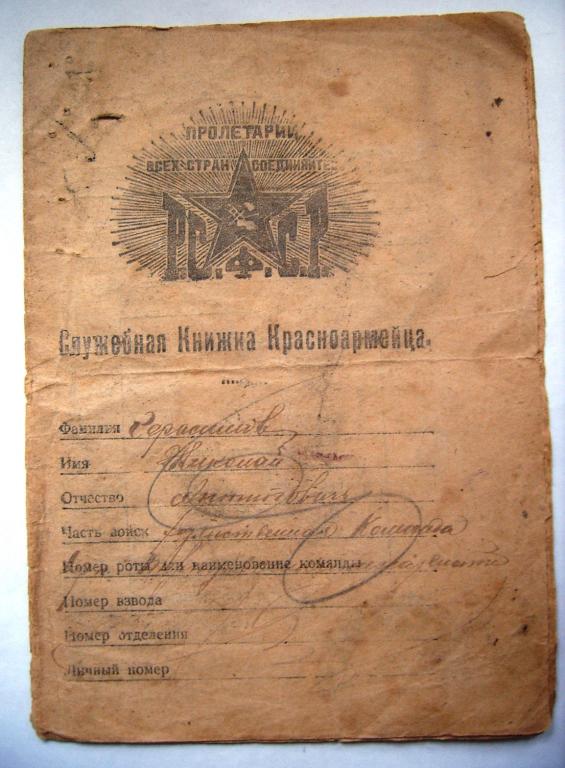 ПРОЛЕТАРИИ
ВСЕХ СТРАН СОЕДИНЯЙТЕС
Р.С.Ф.С.Р.
Служебная Книжка Красноармейца.
Фамилия Герасимов
Имя Николай
Отчество
Часть войск Команда
Номер роты или наименование команды
Номер взвода
Номер отделения
Личный номер